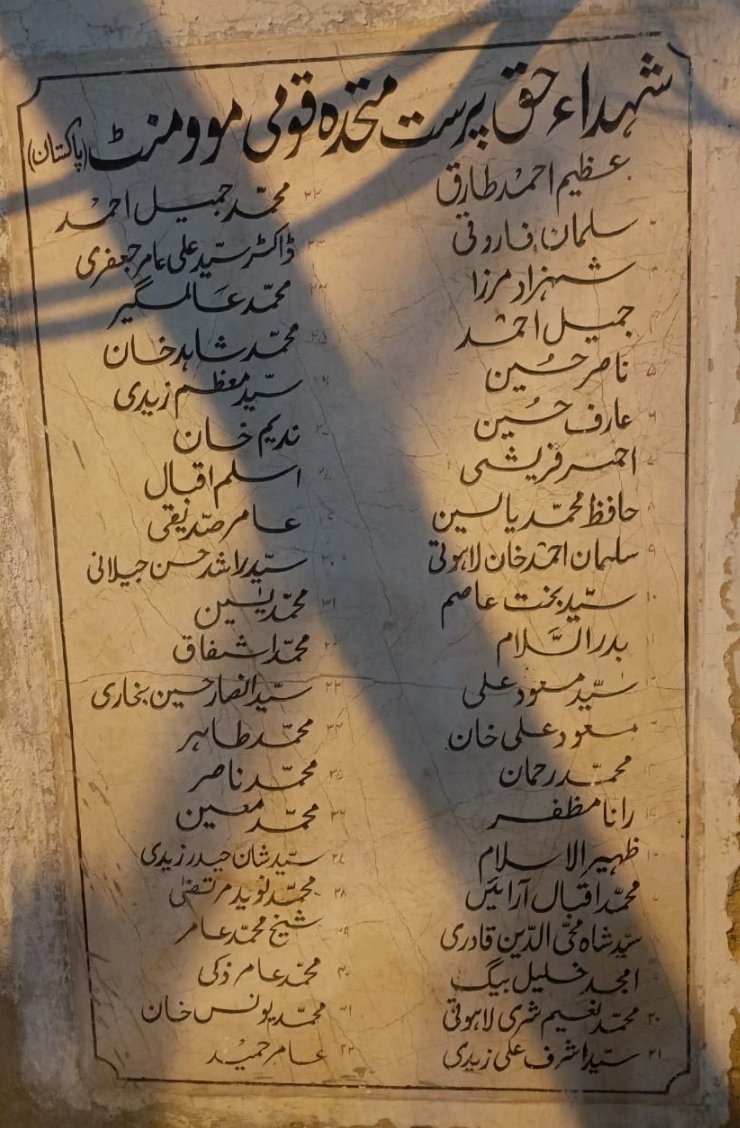 شہداء حق پرست متحدہ قومی موومنٹ (پاکستان)
عظیم احمد طارق
سلمان فاروقی
شہزاد مرزا
جمیل احمد
۵ ناصر حسین
۶ عارف حسین
احمر قریشی
حافظ محمّد یاسین
۹ سلمان احمد خان لاہوتی
۱۰ سیّد بخت عاصم
بدر السّلام
سیّد مسعود علی
مسعود علی خان
محمّد رحمان
رانا مظفر
ظہیر الاسلام
محمّد اقبال آرائیں
سیّد شاہ محی الدّین قادری
امجد خلیل بیگ
۲۰ محمّد نعیم شری لاہوتی
۲۱ سیّد اشرف علی زیدی
۲۲ محمّد جمیل احمد
۲۳ ڈاکٹر سیّد علی عامر جعفری
۲۴ محمّد عالمگیر
۲۵ محمّد شاہد خان
۲۶ سیّد معظم زیدی
ندیم خان
اسلم اقبال
عامر صدّیقی
۳۰ سیّد راشد حسن جیلانی
۳۱ محمّد یٰسین
محمّد اشفاق
۳۳ سیّد انصار حسین بخاری
۳۴ محمّد طاہر
۳۵ محمّد ناصر
۳۶ محمّد معین
۳۷ سیّد شان حیدر زیدی
۳۸ محمّد نوید مرتضیٰ
۳۹ شیخ محمّد عامر
۴۰ محمّد عامر ذکی
۴۱ محمّد یونس خان
۴۲ عامر حمید